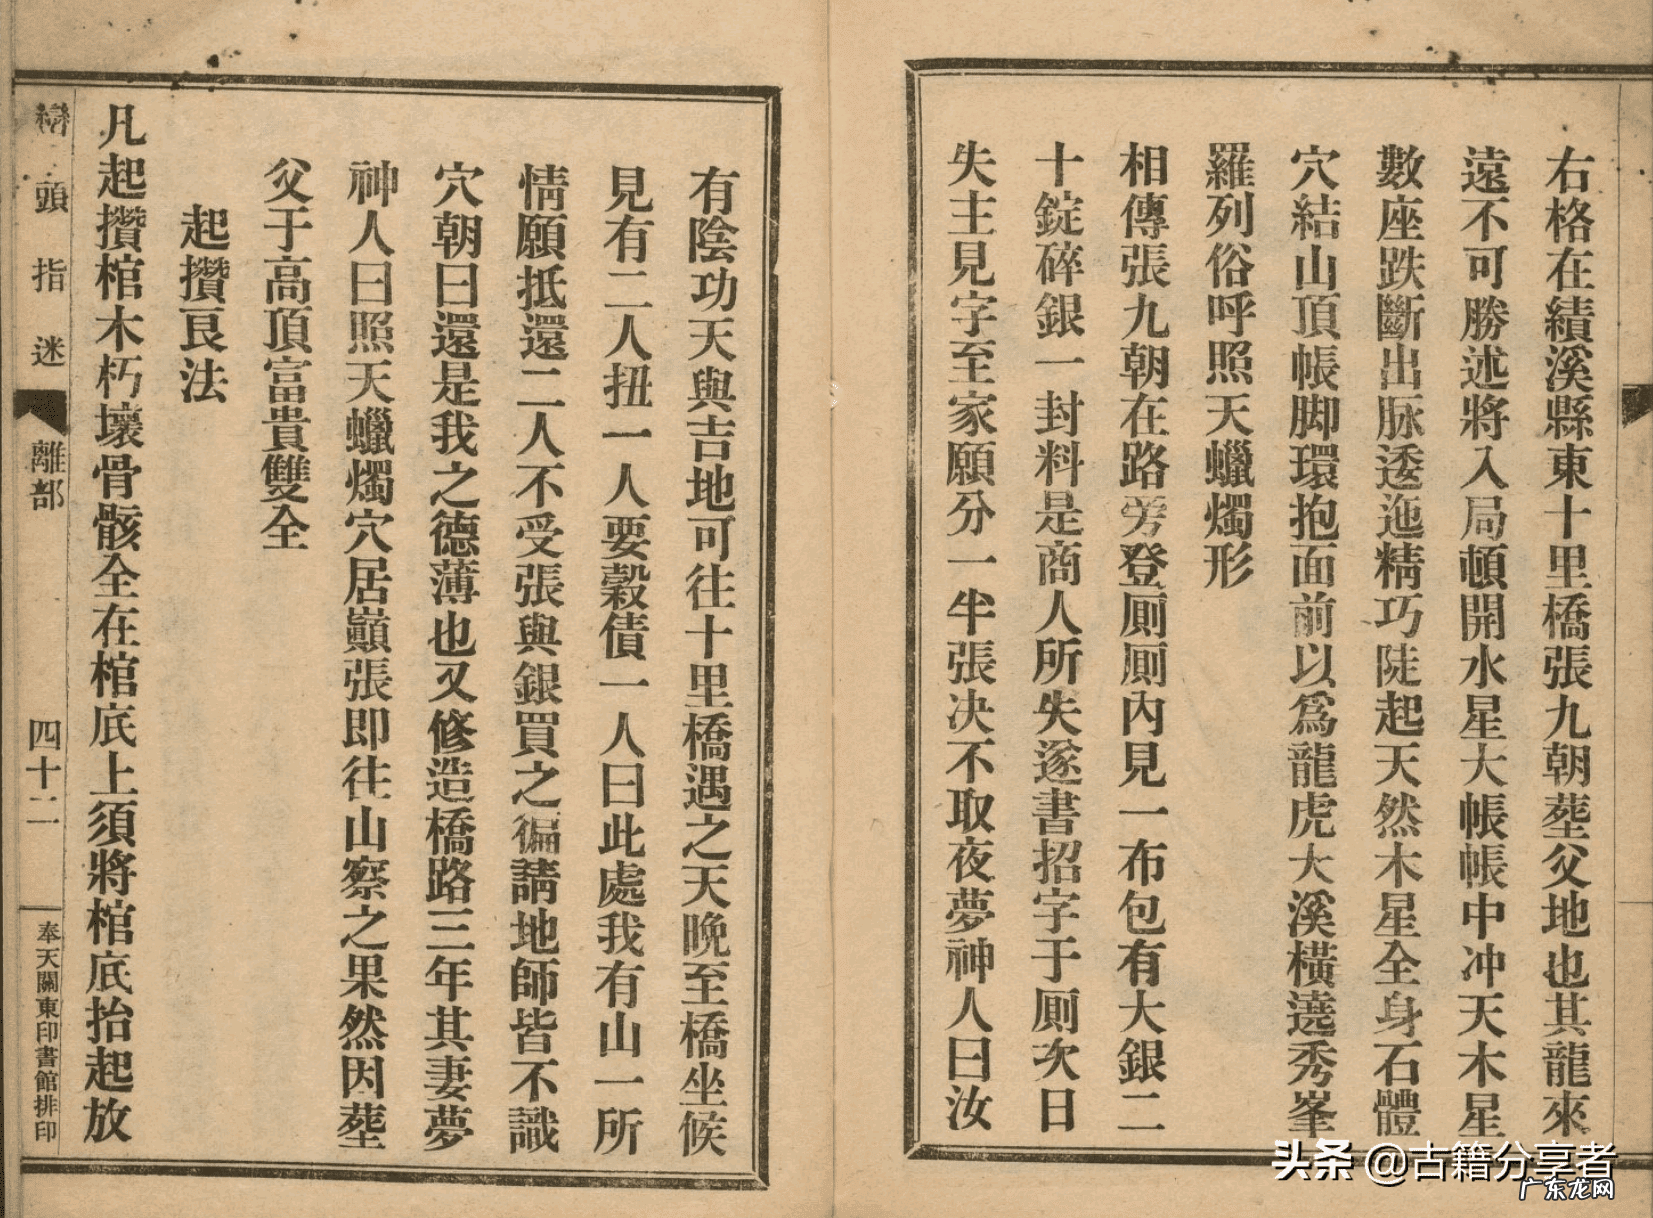 右格在績溪縣東十里橋張九朝塟父地也其龍來
遠不可勝述將入局頓開水星大帳帳中冲天木星
數座跌斷出脉逶迤精巧陡起天然木星全身石體
穴結山頂帳脚環抱面前以爲龍虎大溪橫遶秀峯
羅列俗呼照天蠟燭形
相傳張九朝在路旁登厠厠內見一布包有大銀二
十錠碎銀一封料是商人所失遂書招字于厠次日
失主見字至家願分一半張决不取夜夢神人曰汝
有陰功天與吉地可往十里橋遇之天晚至橋坐候
見有二人扭一人要穀債一人曰此處我有山一所
情願抵還二人不受張與銀買之徧請地師皆不識
穴朝曰還是我之德薄也又修造橋路三年其妻夢
神人曰照天蠟燭穴居巔張即往山察之果然因塟
父于高頂富貴雙全
起攢艮法
凡起攢棺木朽壞骨骸全在棺底上須將棺底抬起放
巒頭指迷
離部
四十二
奉天關東印書館排印
头条 @古籍分享者
广东龙网